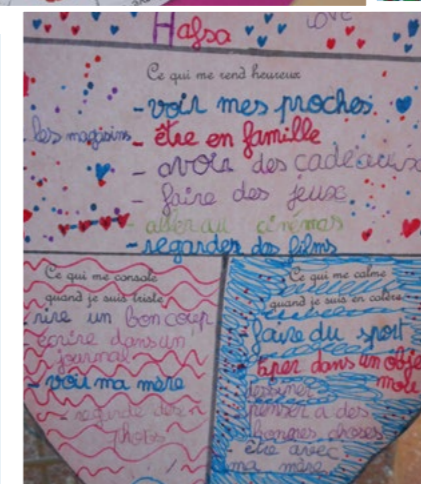 LOVE
Hafsa
Ce qui me rend heureux
- voir mes proches.
les magasins - être en famille
- avoir des cadeaux
- faire des jeux
- aller au cinémas
- regarder des films
Ce qui me console
quand je suis triste
rire un bon coup
écrire dans un
journal
- voir ma mère
- regarde des
photos
Ce qui me calme
quand je suis en colère
faire du sport
taper dans un obje
mole
dessiner
penser a des
bonnes choses
- être avec
ma mère